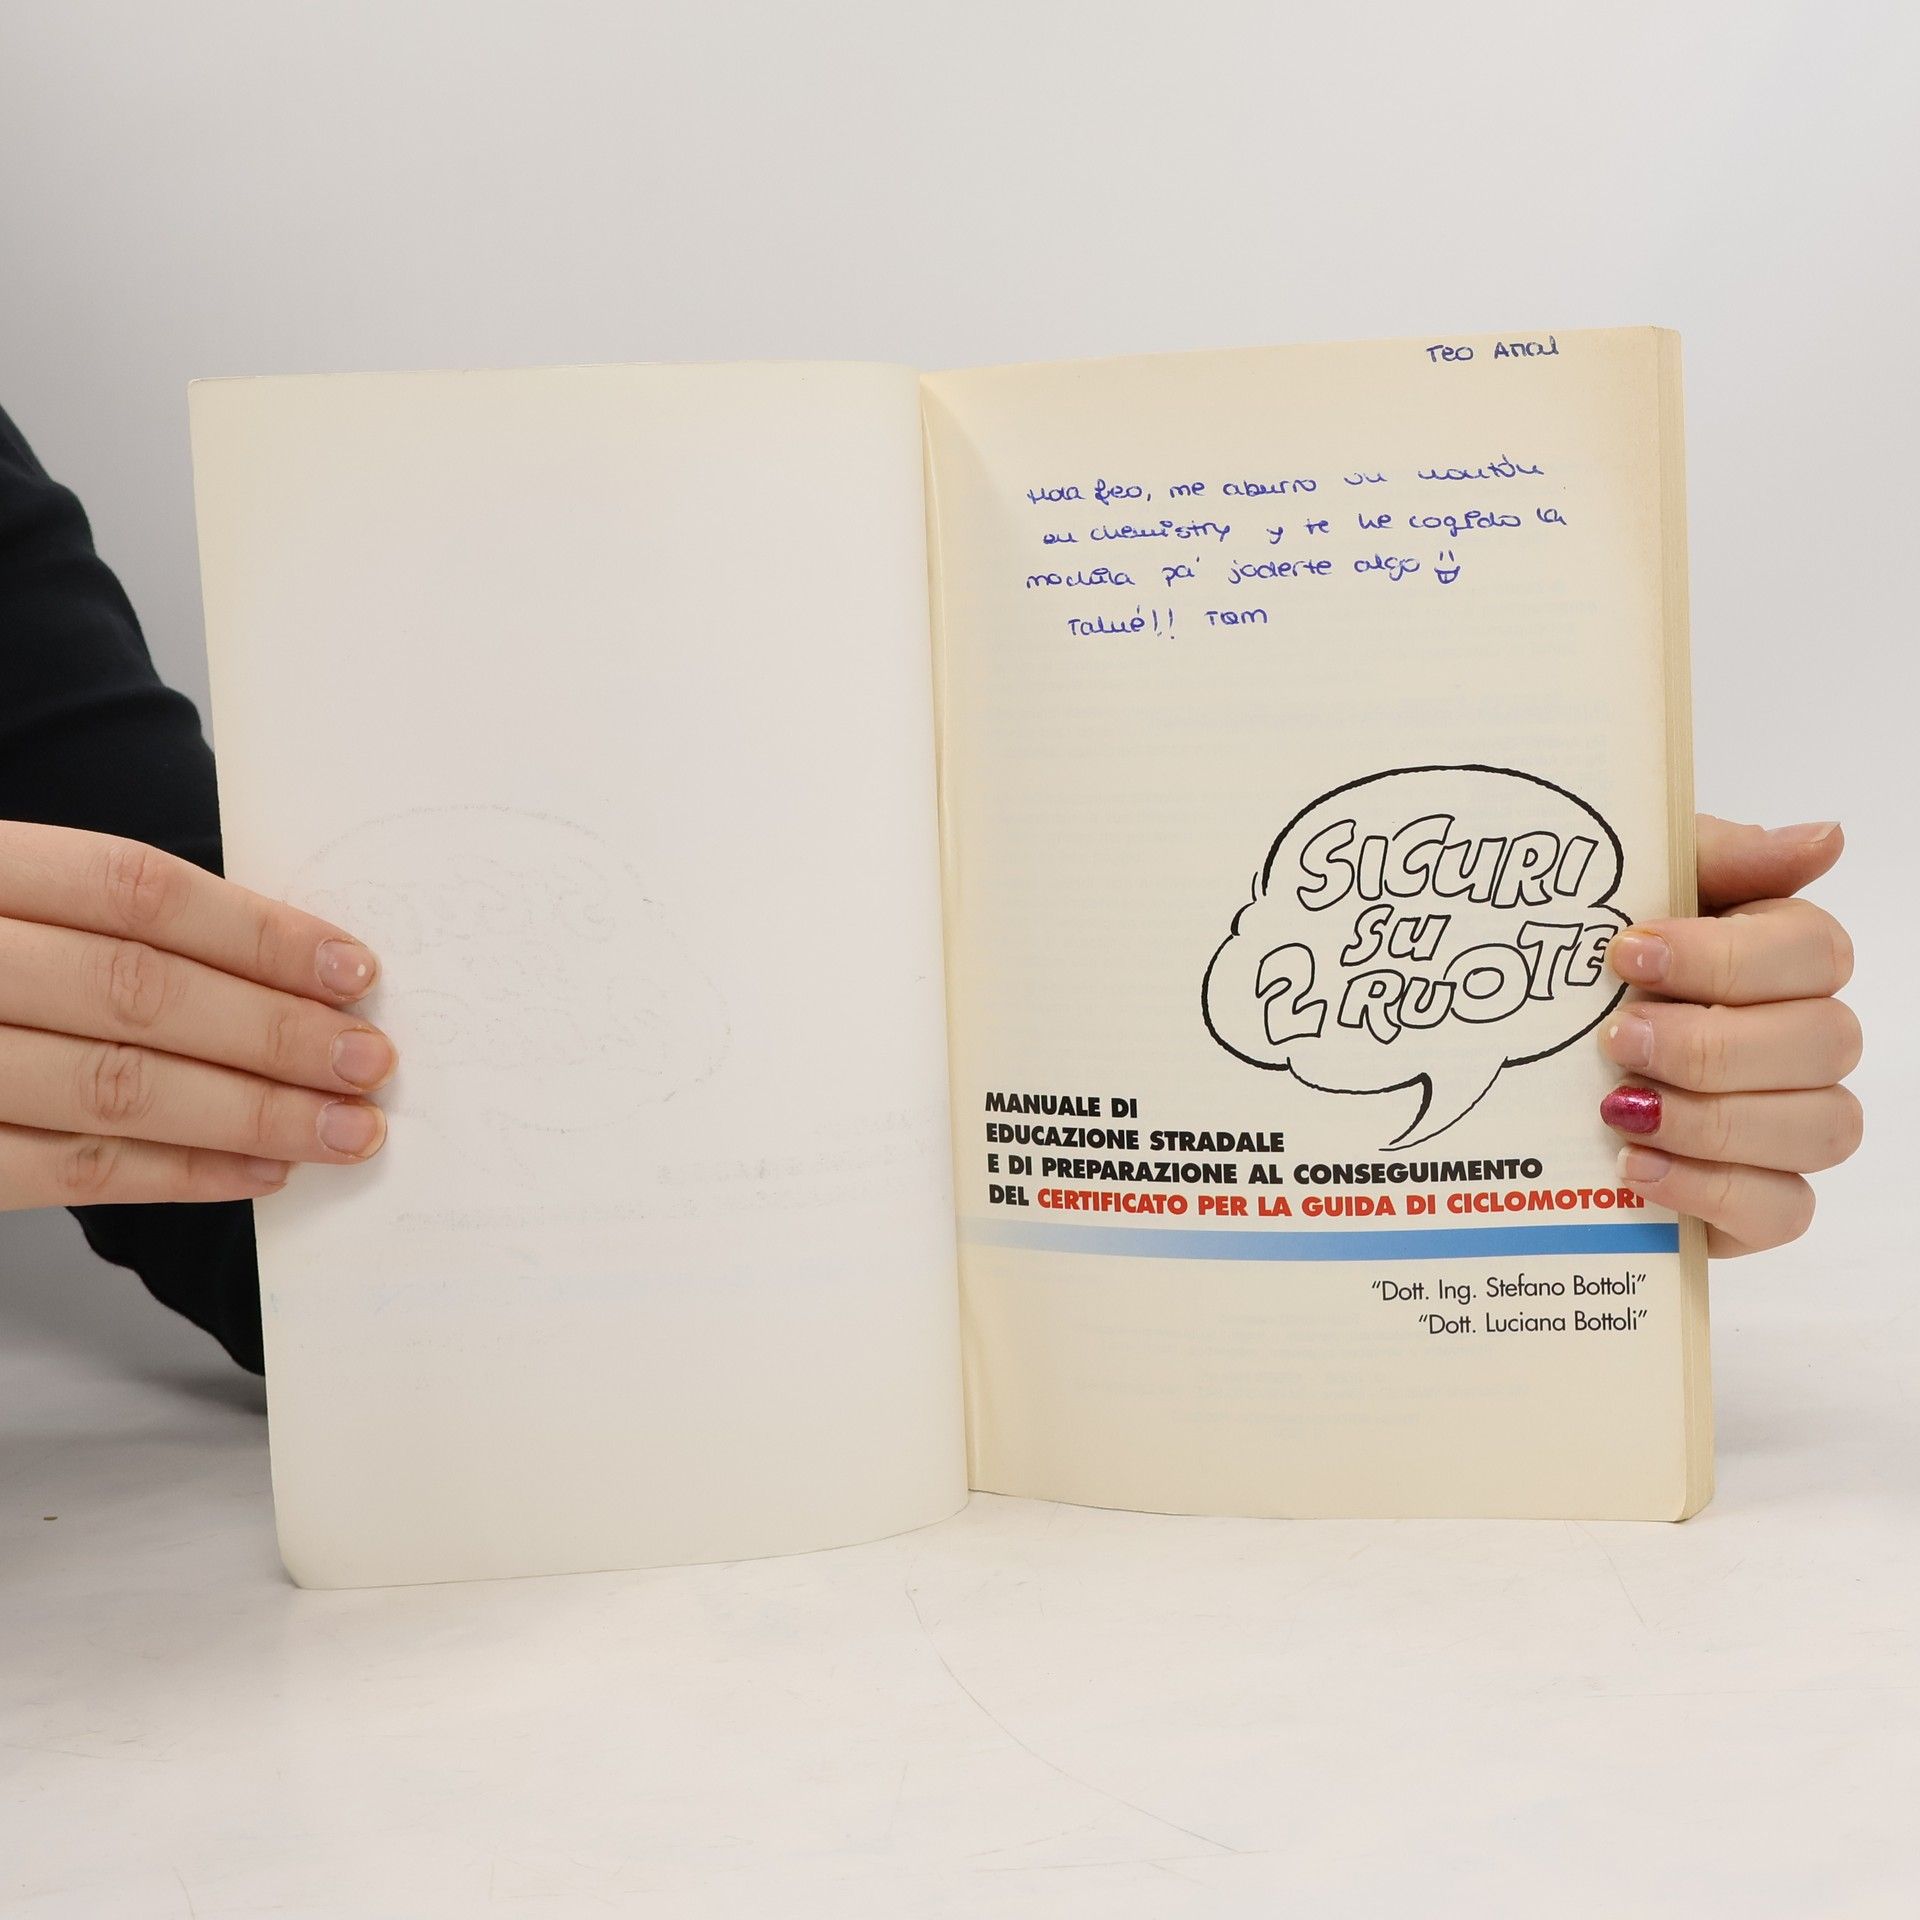 Teo
Hola feo, me aburro un montón
en chemistry y te he cogido la
mochila pa' joderte algo
Talué!! Tom
SICURI
SU
2 RUOTE
MANUALE DI
EDUCAZIONE STRADALE
E DI PREPARAZIONE AL CONSEGUIMENTO
DEL CERTIFICATO PER LA GUIDA DI CICLOMOTORI
"Dott. Ing. Stefano Bottoli"
"Dott. Luciana Bottoli"